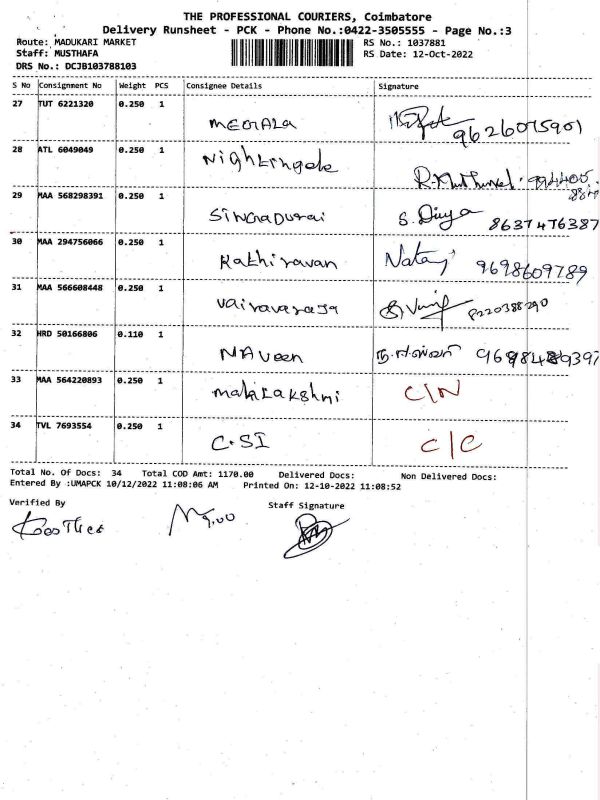 THE PROFESSIONAL COURIERS, Coimbatore
Delivery Runsheet - PCK - Phone No.:0422-3505555 - Page No.:3
Route: MADUKARI MARKET RS No.: 1037881
Staff: MUSTHAFA RS Date: 12-Oct-2022
DRS No.: DCJB103788103
S No Consignment No Weight PCS Consignee Details Signature
27 TUT 6221320 0.250 1 MEGALA 9626075901
28 ATL 6049049 0.250 1 Nightingale
29 MAA 568298391 0.250 1 Singadurai S. Divya 8637476387
30 MAA 294756066 0.250 1 Kathiravan Nataraj 9698609789
31 MAA 566608448 0.250 1 Vairavaraja 8220388290
32 HRD 50166806 0.110 1 Naveen
33 MAA 564220893 0.250 1 mahalakshmi C/N
34 TVL 7693554 0.250 1 C.SI C/C
Total No. Of Docs: 34 Total COD Amt: 1170.00 Delivered Docs: Non Delivered Docs:
Entered By :UMAPCK 10/12/2022 11:08:06 AM Printed On: 12-10-2022 11:08:52
Verified By Staff Signature